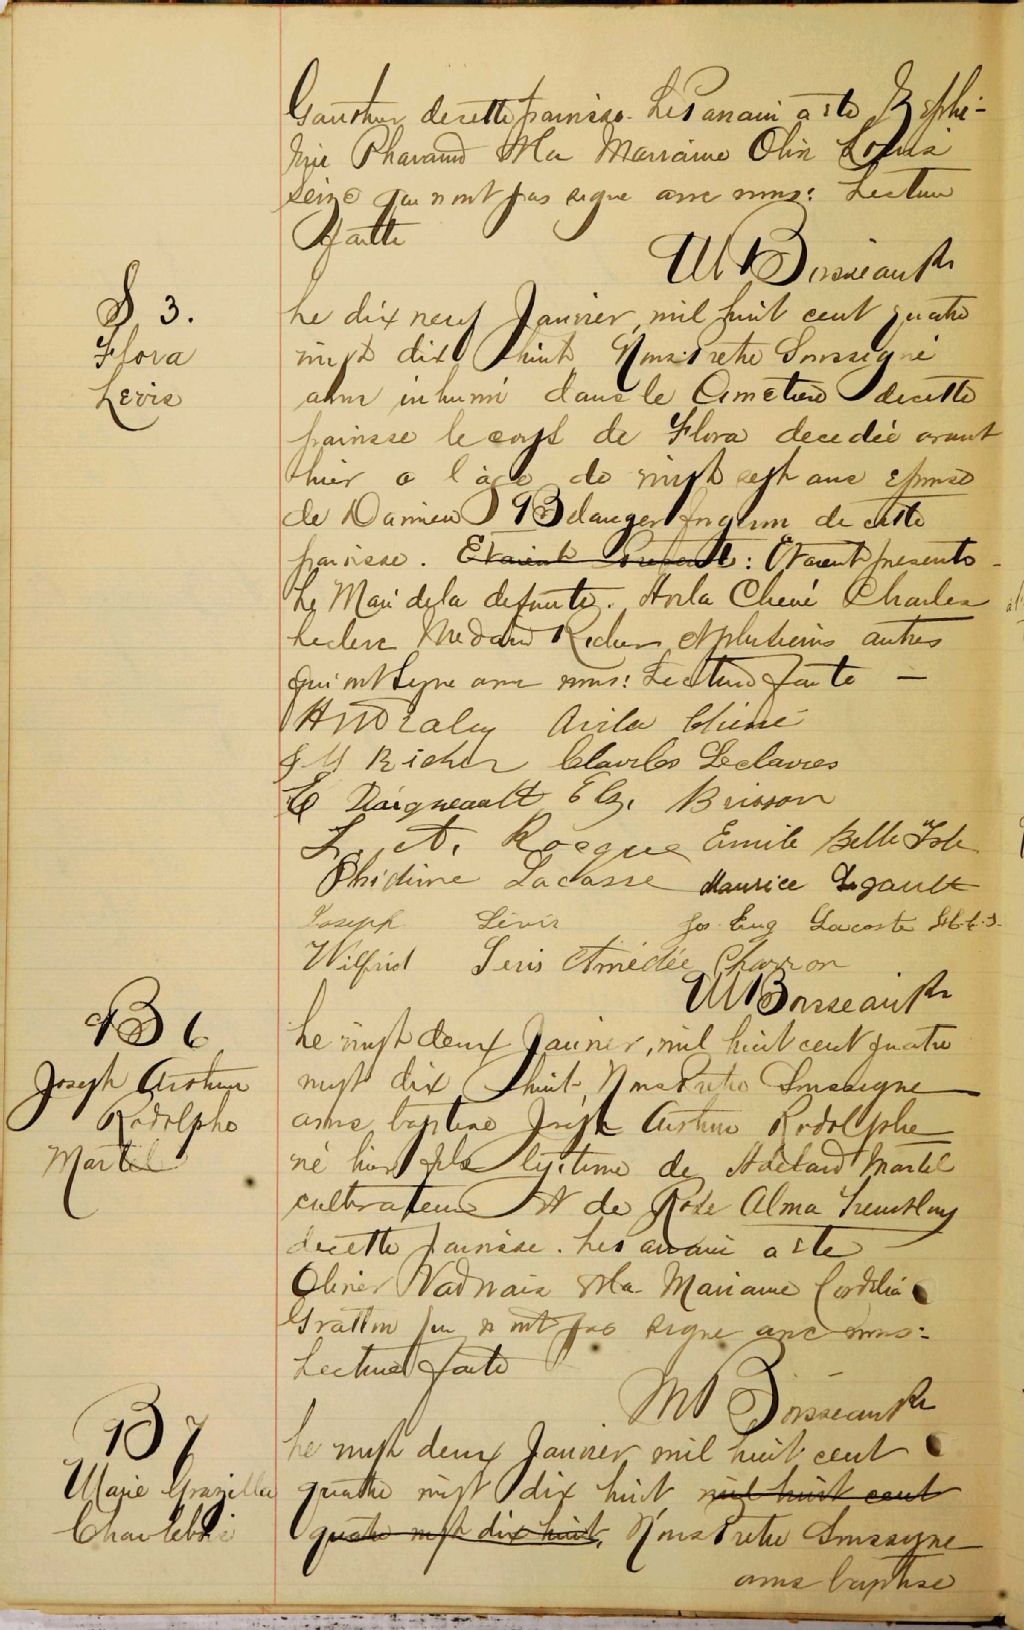 Gauthier de cette paroisse. Le Parrain a été Zephi-
rin Pharand et la Marraine Olin Louis
Seize qui n'ont pas signé avec nous: Lecture
faite
M Boisseau Ptr
S 3.
Flora
Levis
Le dix neuf Janvier, mil huit cent quatre
vingt dix huit Nous Pretre Soussigné
avons inhumé dans le Cimetiere de cette
paroisse le corps de Flora decedée avant
hier a l'âge de vingt sept ans epouse
de Damien Belanger forgeron de cette
paroisse. Etaient Present: Etaient presents
le Mari de la defunte. Avila Chené Charles
Leclerc Medard Richer et plusieurs autres
qui ont signe avec nous: Lecture faite —
Avila Chené
J M Richer Charles Leclaires
E Daigneault Elz. Brisson
L. A. Rocque Emile Belle Isle
Phidime Lacasse Maurice Legault
Joseph Lévis Jos Eug Lacoste
Wilfrid Leris Amédée Charron
M Boisseau Ptr
B 6
Joseph Arthur
Rodolphe
Martel
Le vingt deux Janvier, mil huit cent quatre
vingt dix huit, Nous Pretre Soussigne
avons baptise Joseph Arthur Rodolphe
né hier fils legitime de Adelard Martel
cultivateur et de Rose Alma Tremblay
de cette paroisse. Les parrain a été
Olivier Vadnais et la Marraine Cordelia
Gratton qui n'ont pas signe avec nous:
Lecture faite
M Boisseau Ptr
B 7
Marie Grazilla
Charlebois
Le vingt deux Janvier mil huit cent
quatre vingt dix huit mil huit cent
quatre vingt dix huit, Nous Pretre Soussigne
avons baptise